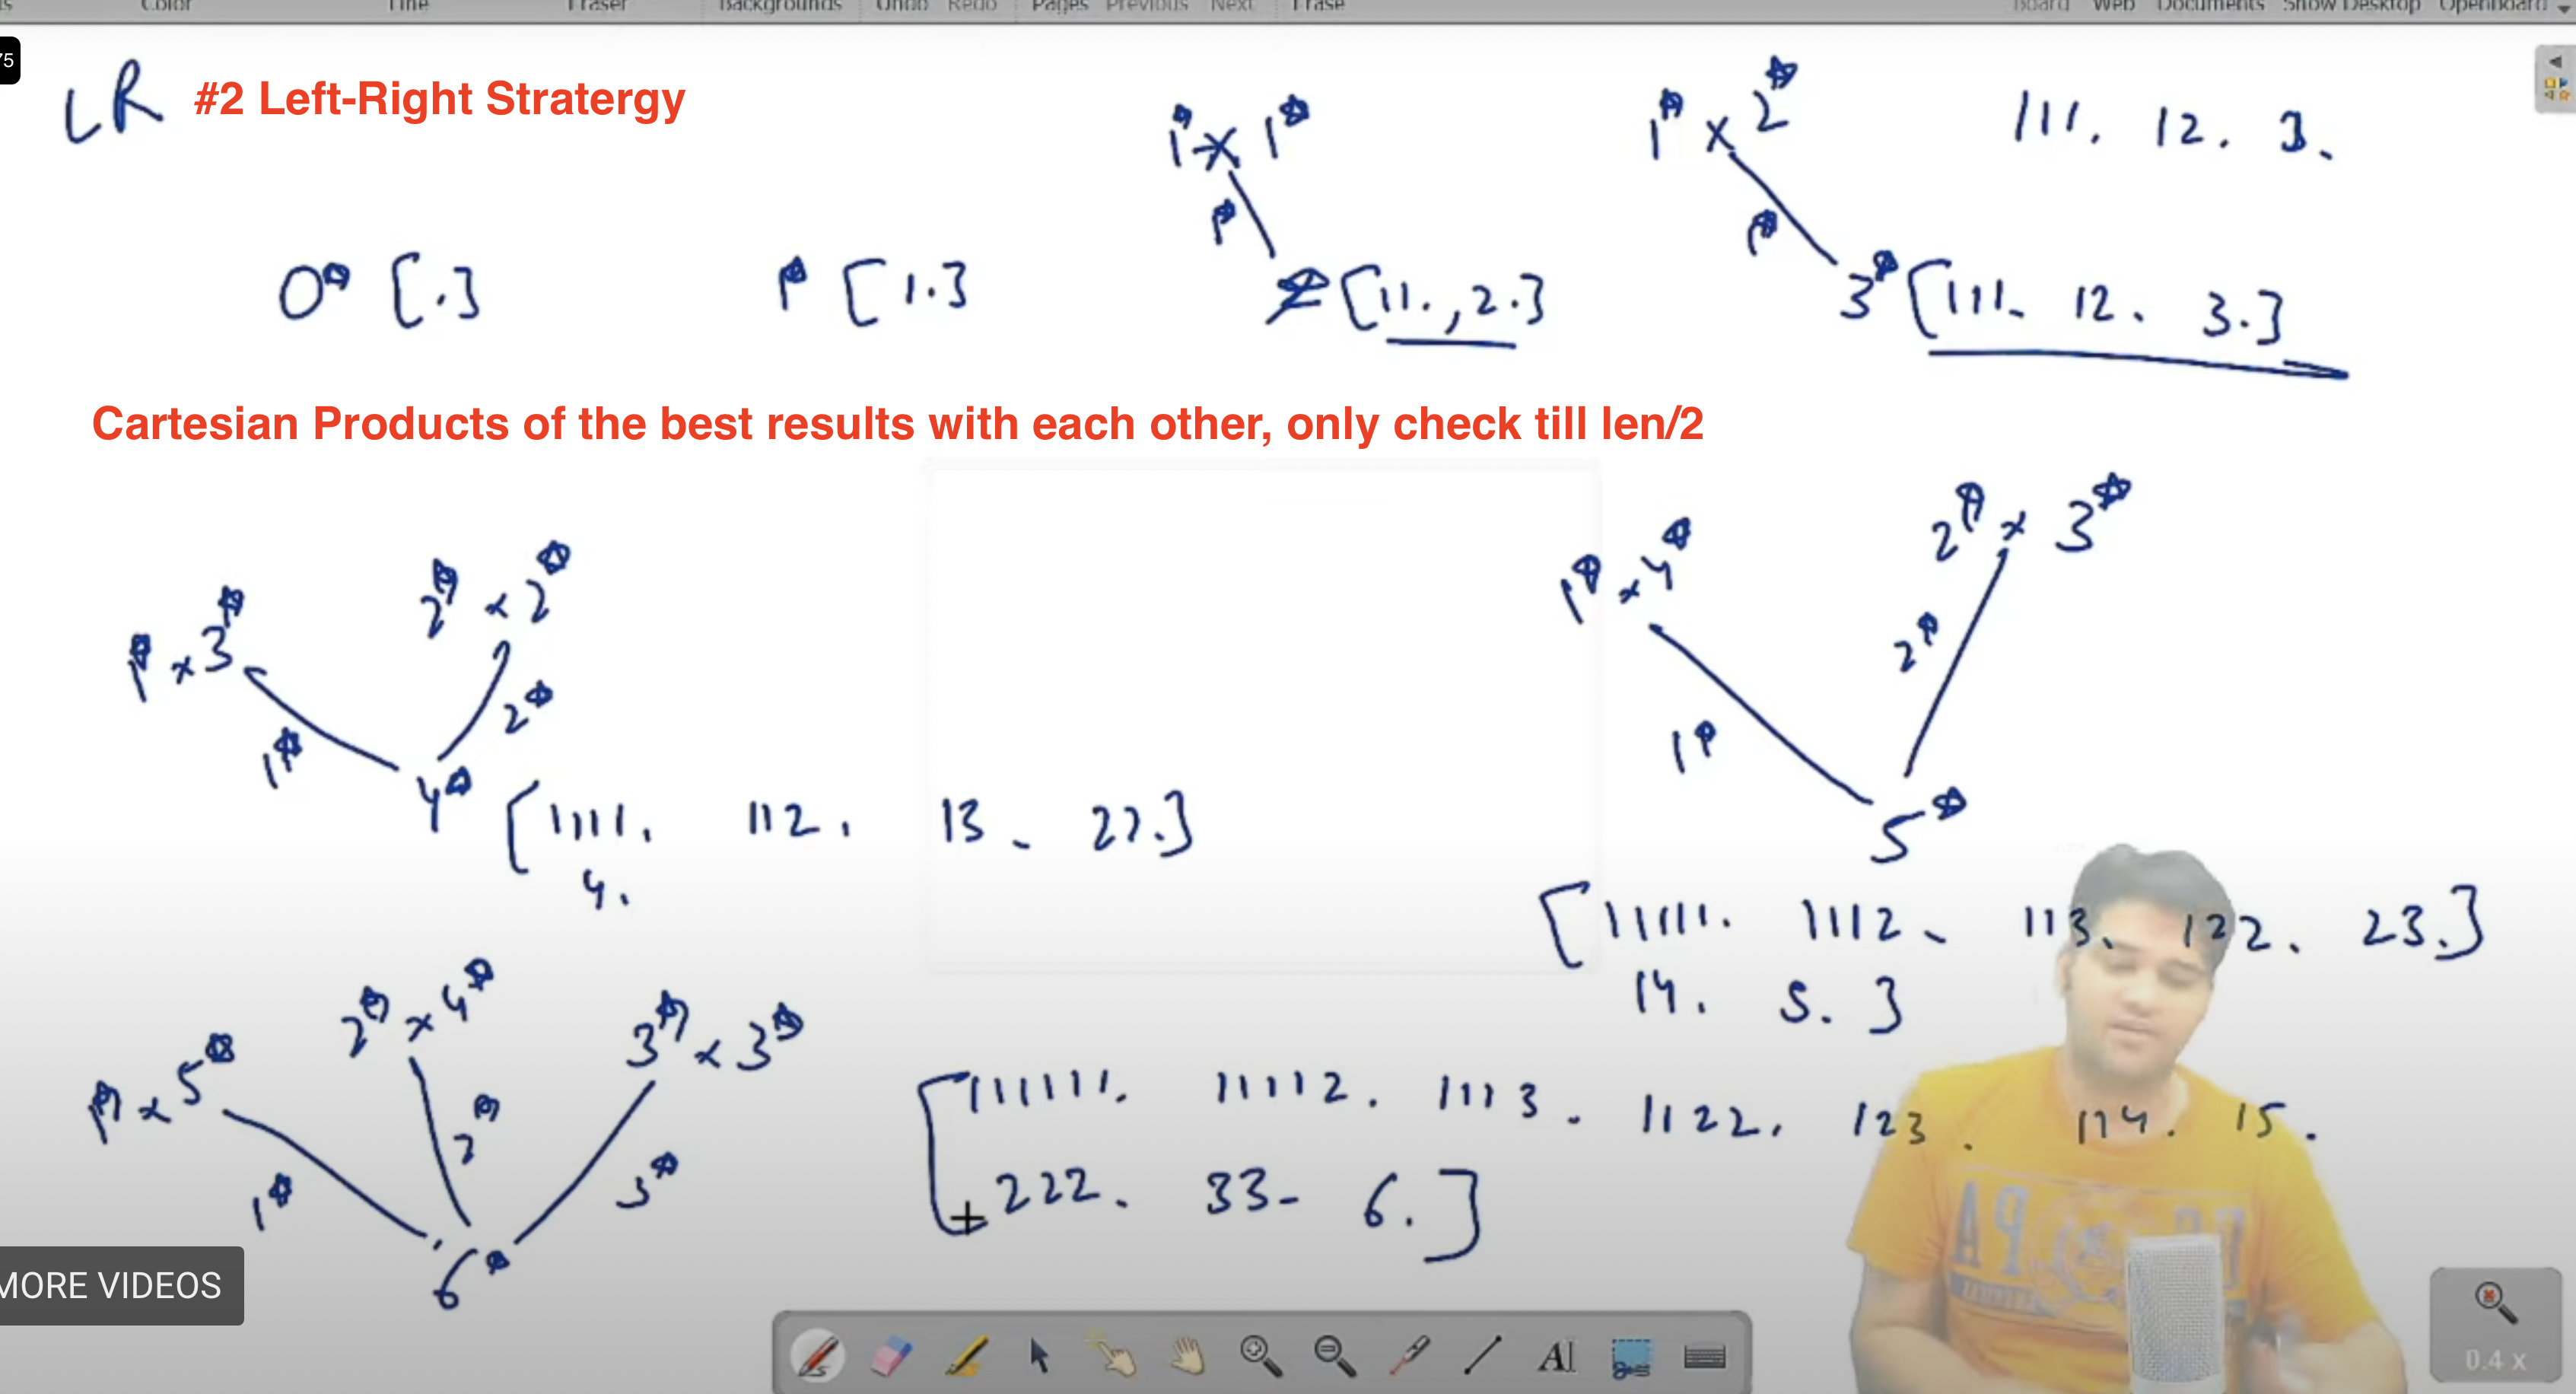 Color Line Eraser Backgrounds Undo Redo Pages Previous Next Erase Board Web Documents Show Desktop OpenBoard
75
LR #2 Left-Right Stratergy
1☆ x 1☆
1☆ x 2☆ 111. 12. 3.
1☆
1☆
0☆ [.]
1☆ [1.]
2☆ [11., 2.]
3☆ [111. 12. 3.]
Cartesian Products of the best results with each other, only check till len/2
1☆ x 3☆
2☆ x 2☆
1☆
2☆
4☆ [1111. 112. 13. 22.]
4.
1☆ x 4☆
2☆ x 3☆
1☆
2☆
5☆
[11111. 1112. 113. 122. 23.]
14. 5.]
1☆ x 5☆
2☆ x 4☆
3☆ x 3☆
1☆
2☆
3☆
6☆
[111111. 11112. 1113. 1122. 123. 114. 15.
222. 33. 6.]
MORE VIDEOS
AI
0.4 x